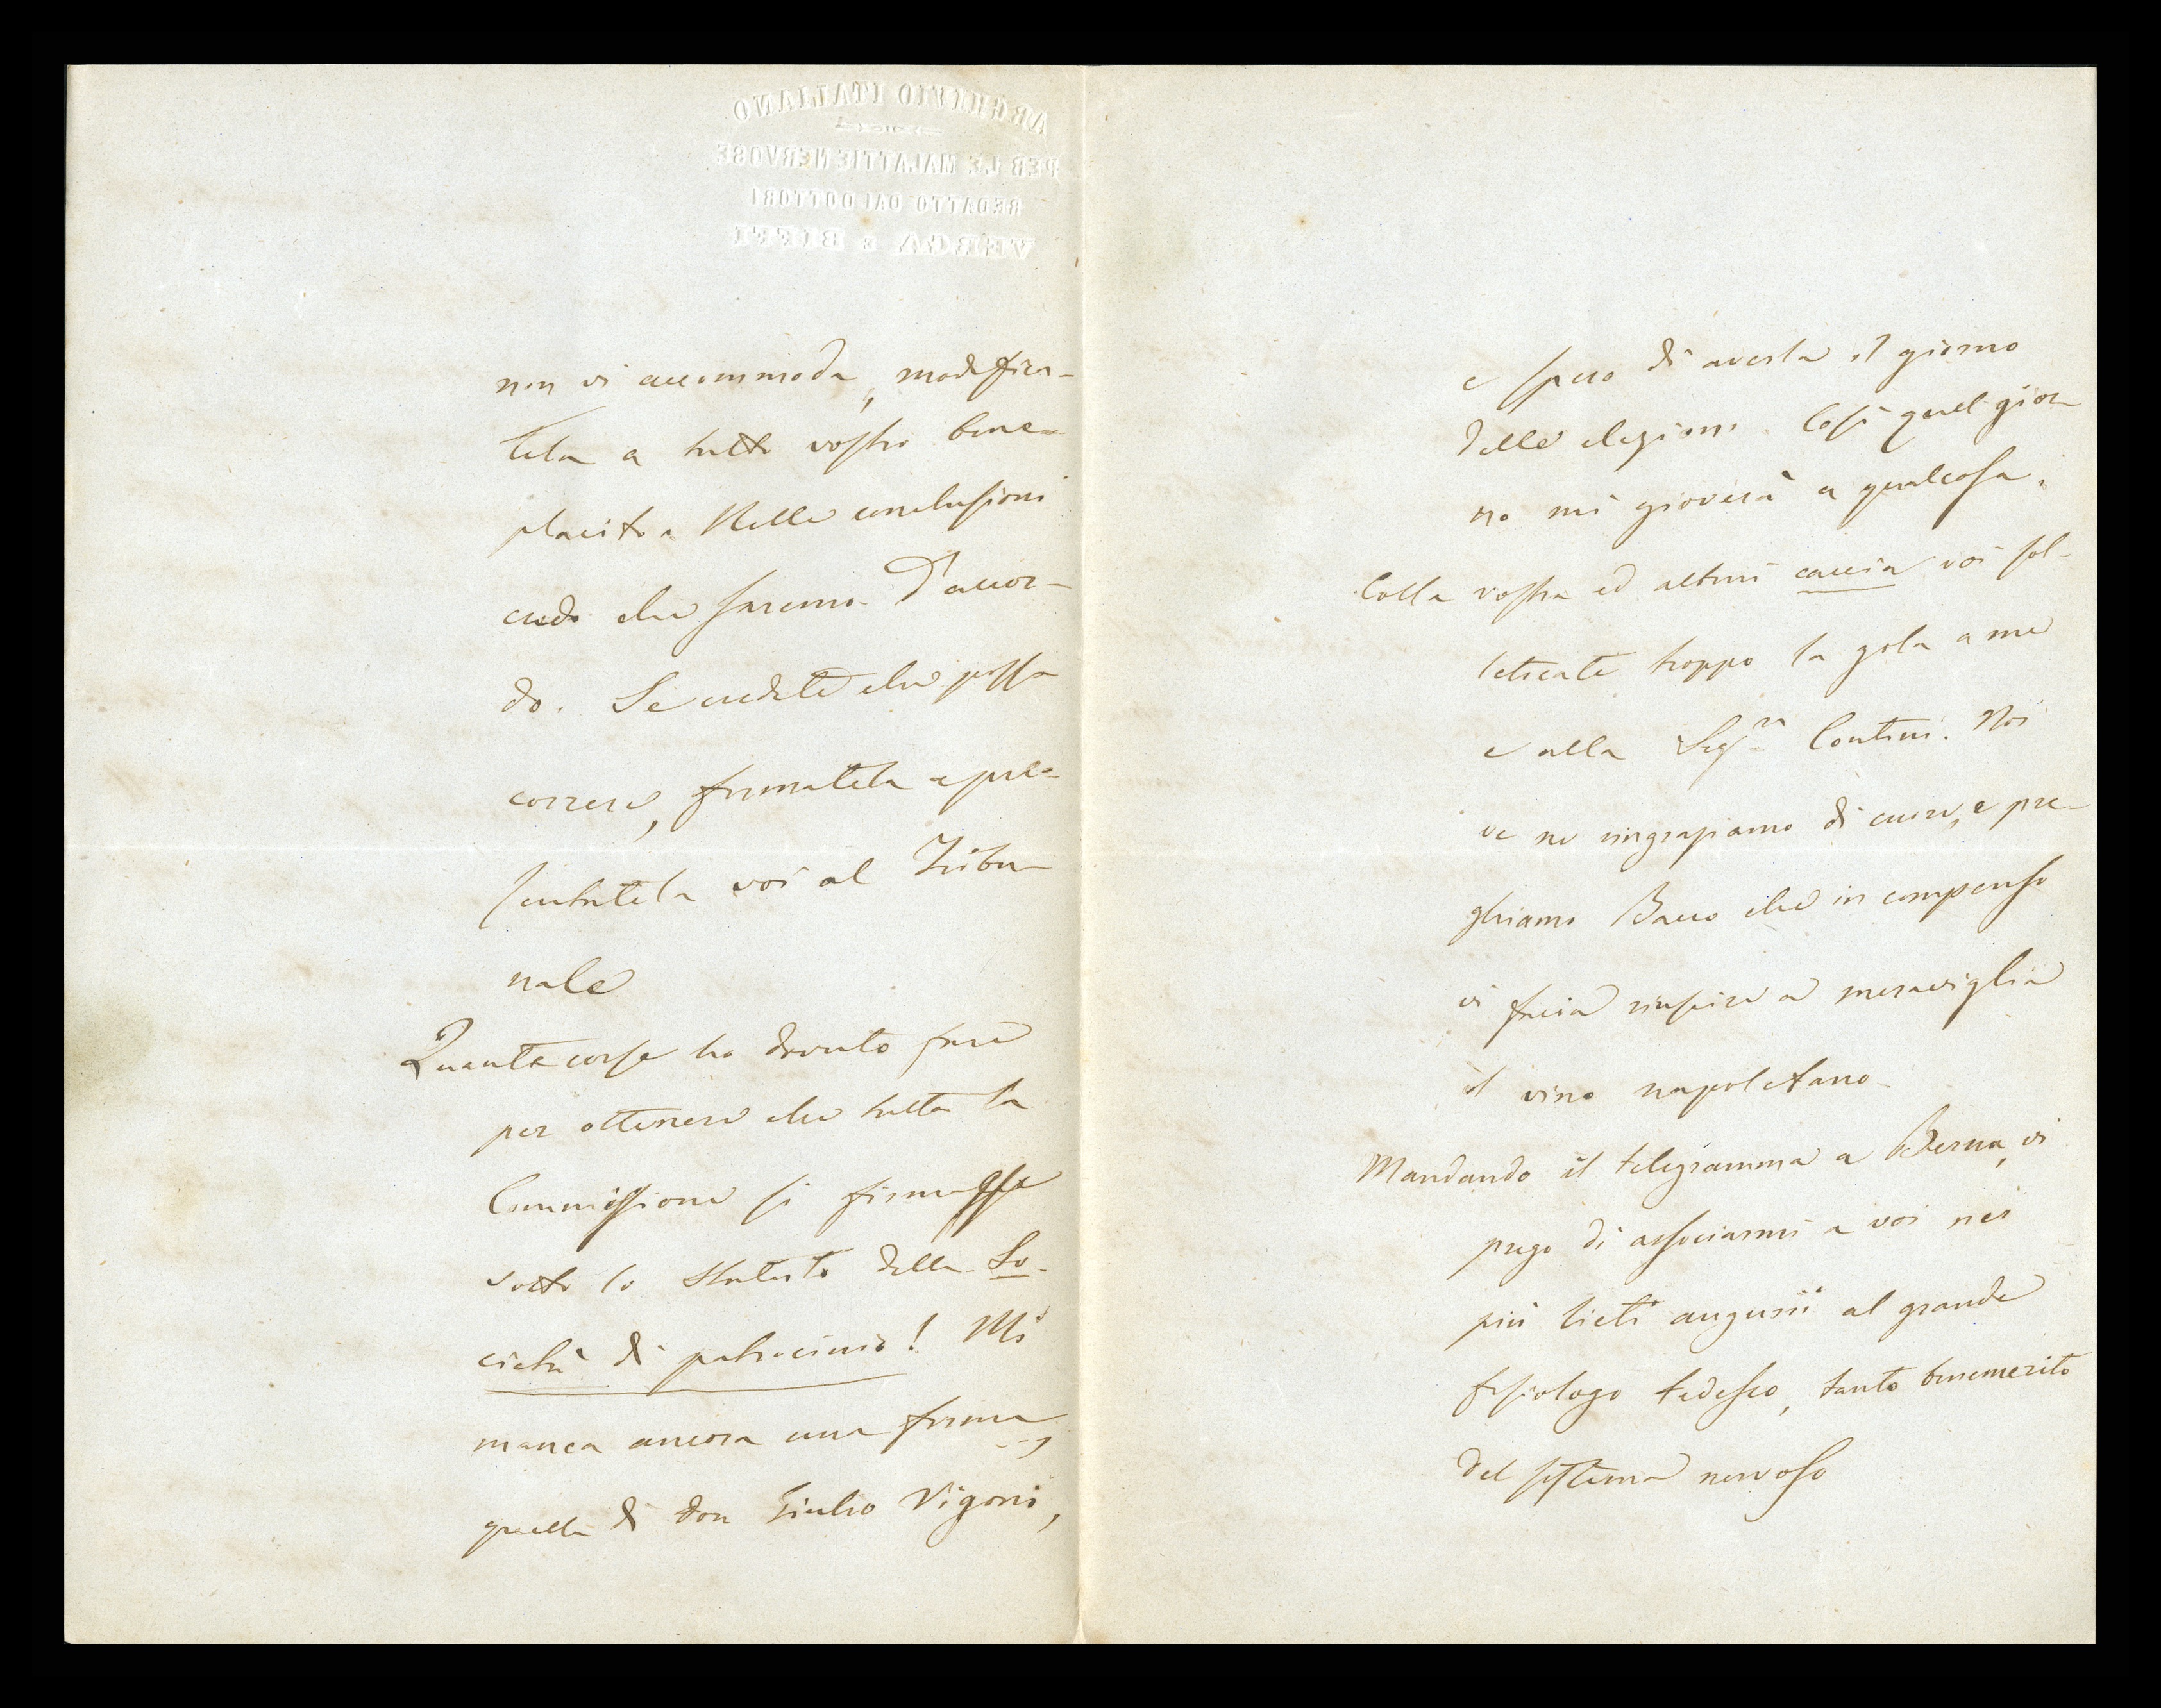 ARCHIVIO ITALIANO
PER LE MALATTIE NERVOSE
REDATTO DAI DOTTORI
VERGA E BIFFI
non vi accommoda, modifica-
tela a tutto vostro bene-
placito. Nelle conclusioni
credo che saremo d'accor-
do. Se credete che possa
correre, firmatela e pre-
sentatela voi al Tribu-
nale
Quante corse ho dovuto fare
per ottenere che tutta la
Commissione si firmasse
sotto lo Statuto della So-
cietà di patrocinio! Mi
manca ancora una firma,
quella di don Giulio Vigoni,
e spero di averla il giorno
delle elezioni. Così quel gior-
no mi gioverà a qualcosa.
Colla vostra ed altrui caccia voi sol-
leticate troppo la gola a me
e alla Sigra Contini. Noi
ve ne ringraziamo di cuore, e pre-
ghiamo Bacco che in compenso
vi faccia riuscire a meraviglia
il vino napoletano
Mandando il telegramma a Berna, vi
prego di associarmi a voi nei
più lieti augurii al grande
fisiologo tedesco, tanto benemerito
del sistema nervoso